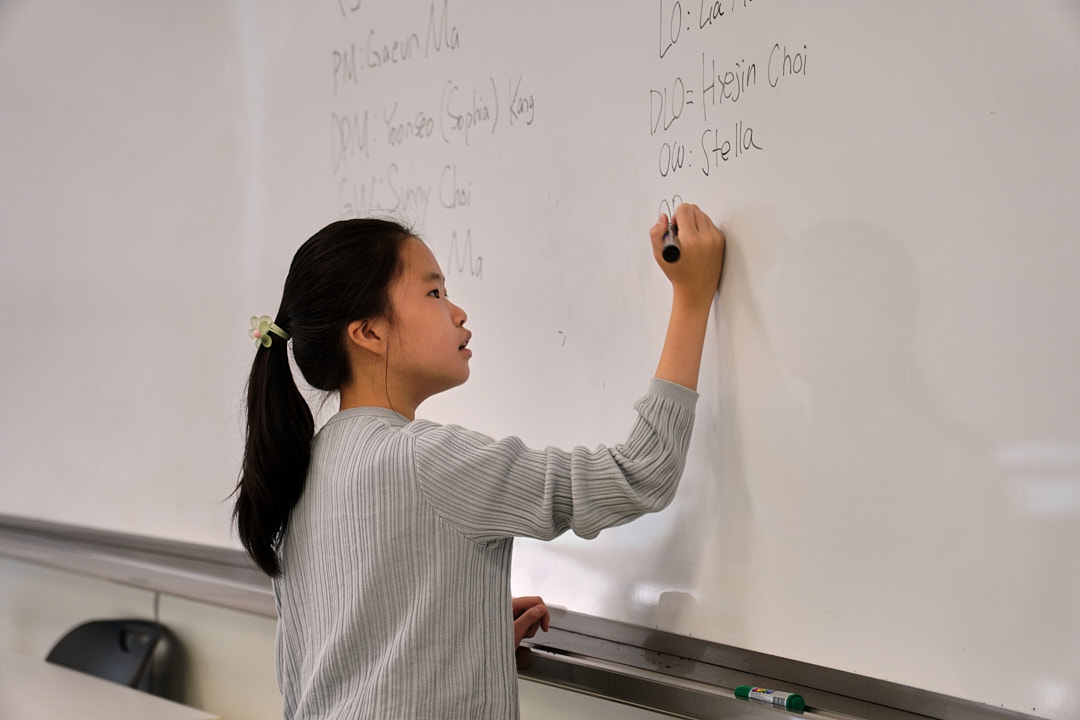 PM: Gaeun Ma
DPM: Yoonseo (Sophia) Kang
GW: Sunny Choi
Ma
LO:
DLO= Hyejin Choi
OW: Stella